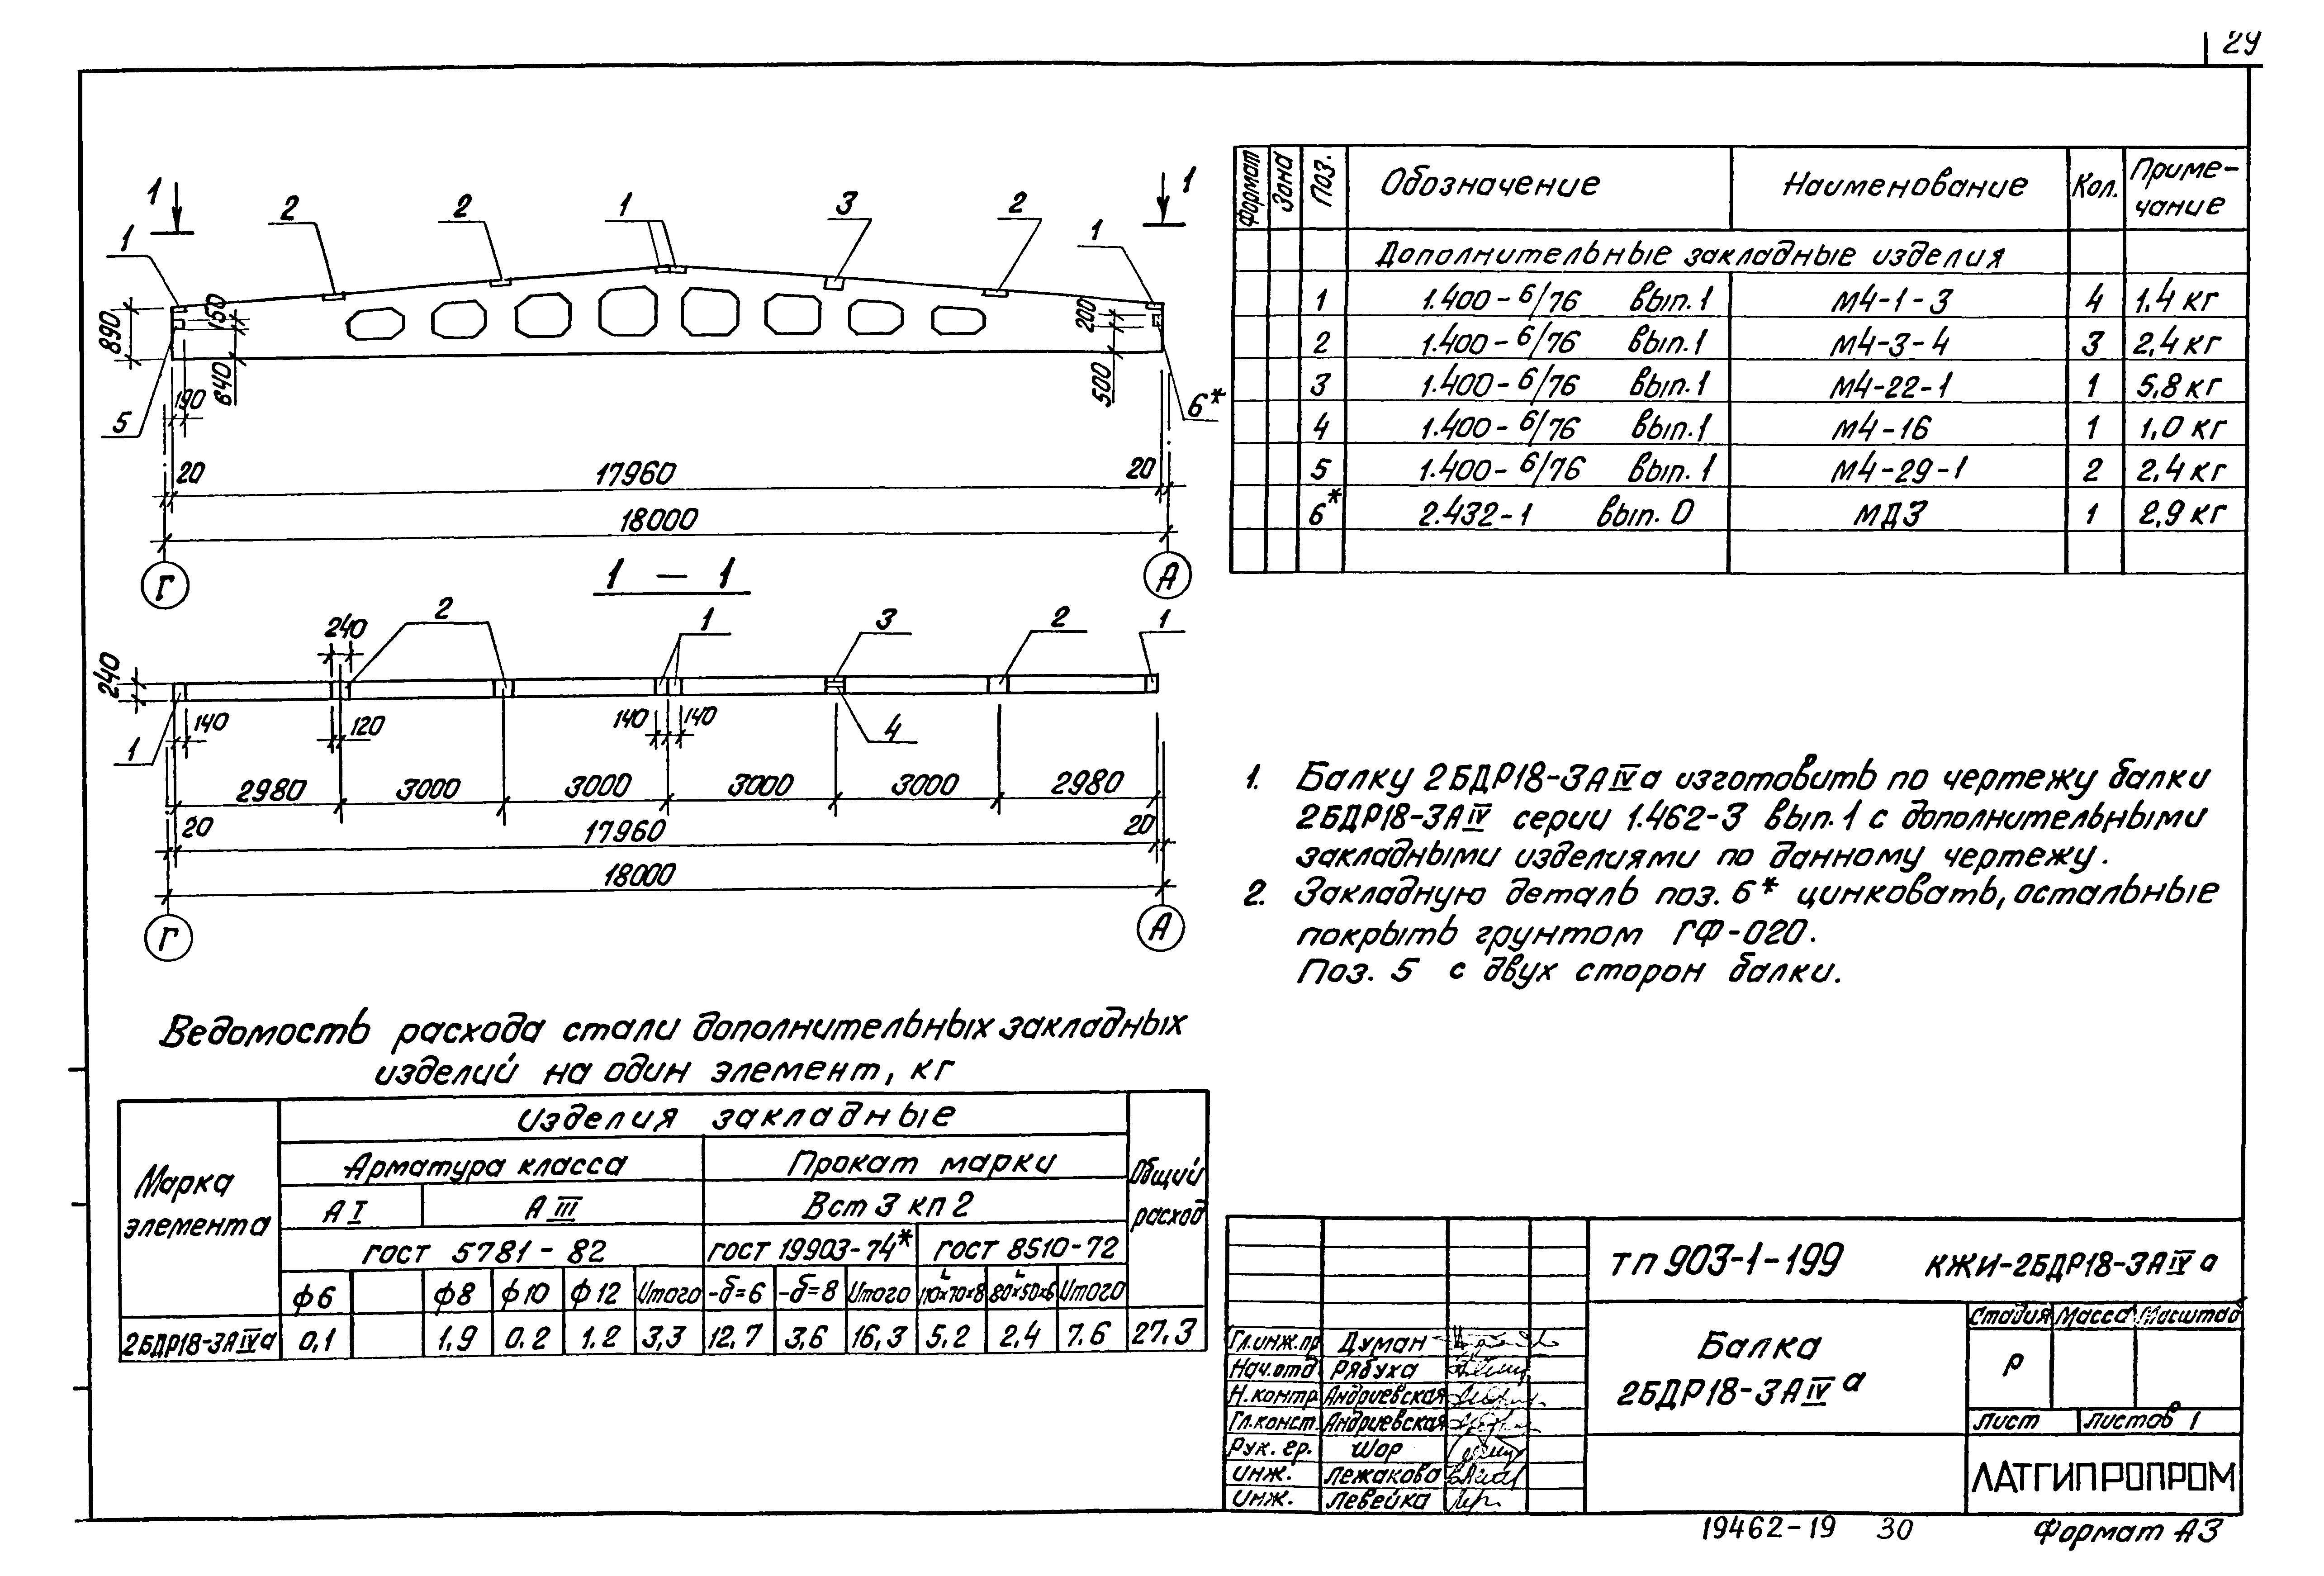 29
1 1
2 2 1 3 2
1 1
890 150 840 190 200 500
5 6*
20 17960 20
18000
Г А
1 – 1
240 2 1 3 2 1
240
140 120 140 140
1 4
2980 3000 3000 3000 3000 2980
20 17960 20
18000
Г А
Формат Зона Поз. Обозначение Наименование Кол. Приме-
чание
Дополнительные закладные изделия
1 1.400-6/76 вып.1 М4-1-3 4 1,4 кг
2 1.400-6/76 вып.1 М4-3-4 3 2,4 кг
3 1.400-6/76 вып.1 М4-22-1 1 5,8 кг
4 1.400-6/76 вып.1 М4-16 1 1,0 кг
5 1.400-6/76 вып.1 М4-29-1 2 2,4 кг
6* 2.432-1 вып. 0 МД3 1 2,9 кг
1. Балку 2БДР18-3АIVа изготовить по чертежу балки
2БДР18-3АIV серии 1.462-3 вып.1 с дополнительными
закладными изделиями по данному чертежу.
2. Закладную деталь поз. 6* цинковать, остальные
покрыть грунтом ГФ-020.
Поз. 5 с двух сторон балки.
Ведомость расхода стали дополнительных закладных
изделий на один элемент, кг
Марка
элемента
Изделия закладные
Общий
расход
Арматура класса Прокат марки
А I А III Вст 3 кп 2
гост 5781-82 гост 19903-74* гост 8510-72
ф6 ф8 ф10 ф12 Итого -δ=6 -δ=8 Итого L110×70×8 L80×50×6 Итого
2БДР18-3АIVа 0,1 1,9 0,2 1,2 3,3 12,7 3,6 16,3 5,2 2,4 7,6 27,3
ТП 903-1-199 КЖИ-2БДР18-3АIVа
Балка
2БДР18-3АIVа
Стадия Масса Масштаб
Р
Лист Листов 1
ЛАТГИПРОПРОМ
Гл.инж.пр Думан
Нач.отд. Рябуха
Н.контр. Андриевская
Гл.конст. Андриевская
Рук. гр. Шор
инж. Лежакова
инж. Левейка
19462-19 30 Формат А3